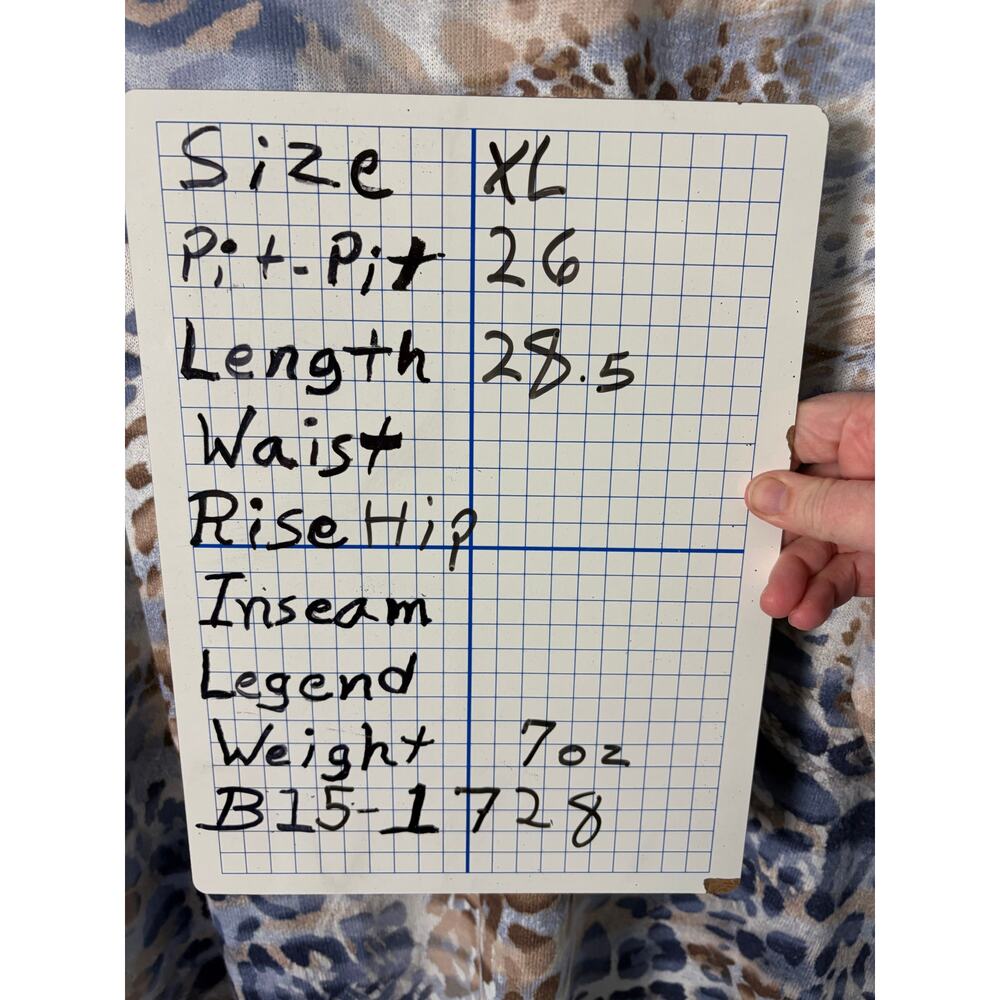 Size XL
Pit-Pit 26
Length 28.5
Waist
Rise Hip
Inseam
Legend
Weight 7oz
B15-1728